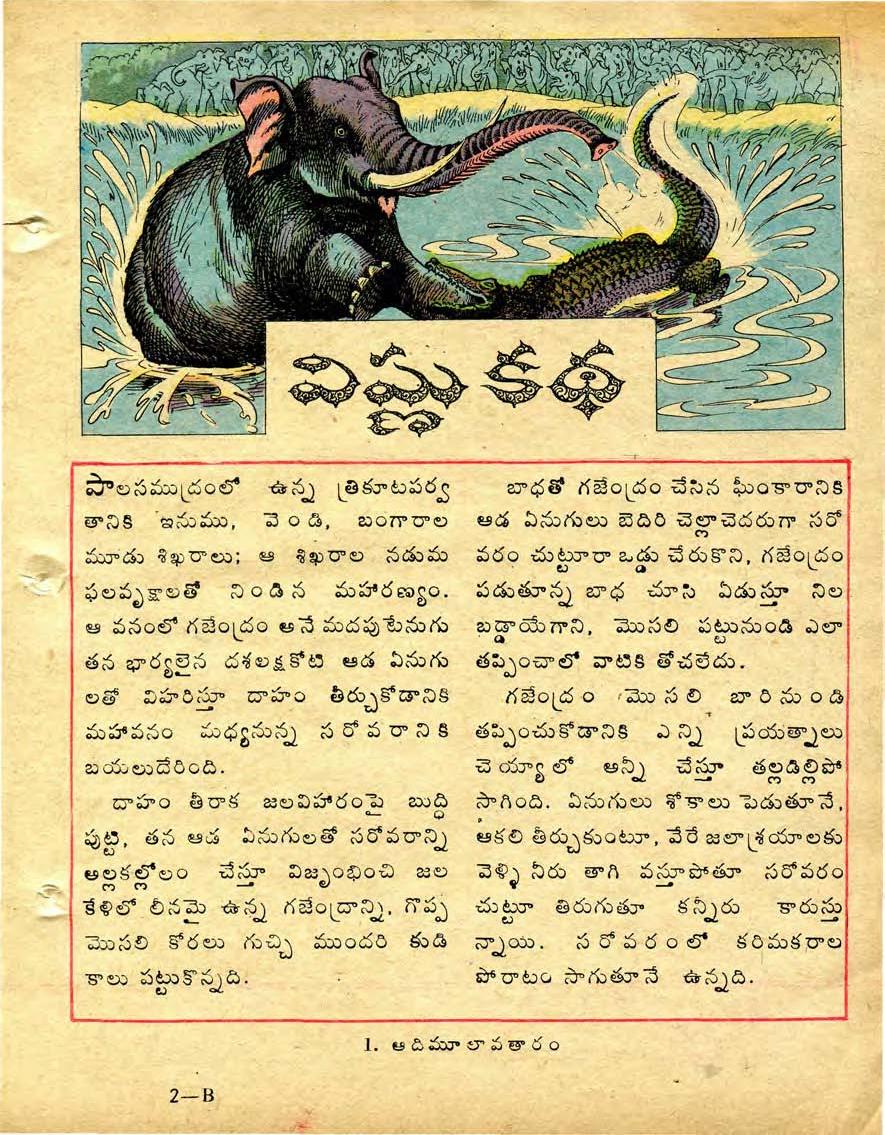 విష్ణుకథ
పాలసముద్రంలో ఉన్న త్రికూటపర్వ
తానికి ఇనుము, వెండి, బంగారాల
మూడు శిఖరాలు; ఆ శిఖరాల నడుమ
ఫలవృక్షాలతో నిండిన మహారణ్యం.
ఆ వనంలో గజేంద్రం అనే మదపుటేనుగు
తన భార్యలైన దశలక్షకోటి ఆడ ఏనుగు
లతో విహరిస్తూ దాహం తీర్చుకోడానికి
మహావనం మధ్యనున్న సరోవరానికి
బయలుదేరింది.
దాహం తీరాక జలవిహారంపై బుద్ధి
పుట్టి, తన ఆడ ఏనుగులతో సరోవరాన్ని
అల్లకల్లోలం చేస్తూ విజృంభించి జల
కేళిలో లీనమై ఉన్న గజేంద్రాన్ని, గొప్ప
మొసలి కోరలు గుచ్చి ముందరి కుడి
కాలు పట్టుకొన్నది.
బాధతో గజేంద్రం చేసిన ఘీంకారానికి
ఆడ ఏనుగులు బెదిరి చెల్లాచెదరుగా సరో
వరం చుట్టూరా ఒడ్డు చేరుకొని, గజేంద్రం
పడుతూన్న బాధ చూసి ఏడుస్తూ నిల
బడ్డాయేగాని, మొసలి పట్టునుండి ఎలా
తప్పించాలో వాటికి తోచలేదు.
గజేంద్రం మొసలి బారినుండి
తప్పించుకోడానికి ఎన్ని ప్రయత్నాలు
చెయ్యాలో అన్నీ చేస్తూ తల్లడిల్లిపో
సాగింది. ఏనుగులు శోకాలు పెడుతూనే,
ఆకలి తీర్చుకుంటూ, వేరే జలాశ్రయాలకు
వెళ్ళి నీరు తాగి వస్తూపోతూ సరోవరం
చుట్టూ తిరుగుతూ కన్నీరు కారుస్తు
న్నాయి. సరోవరంలో కరిమకరాల
పోరాటం సాగుతూనే ఉన్నది.
1. ఆదిమూలావతారం
2—B